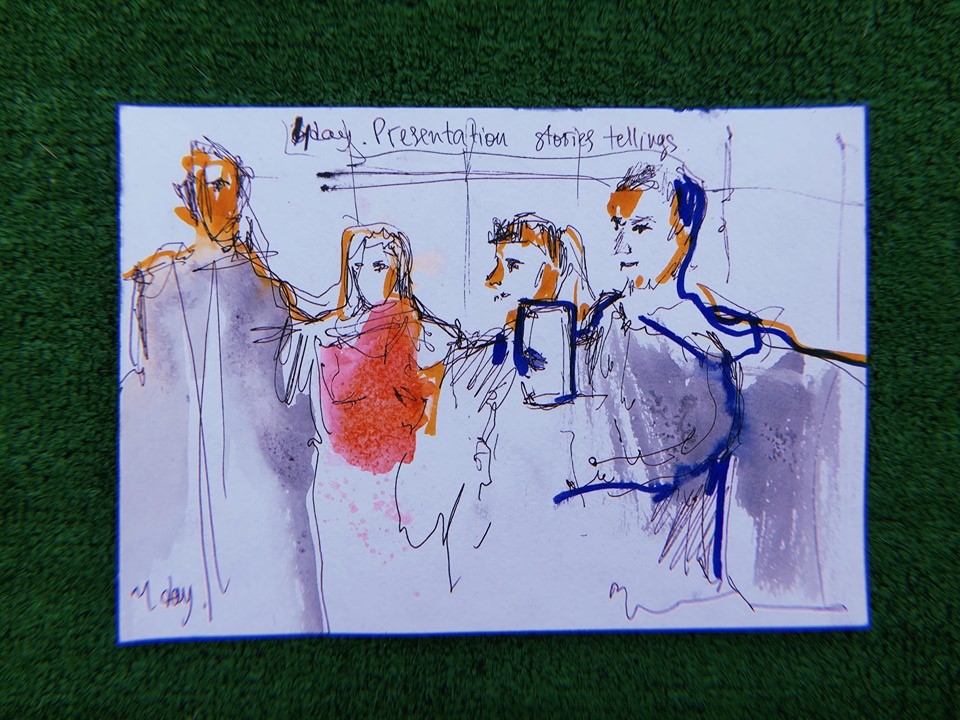 day. Presentation stories tellings
day.